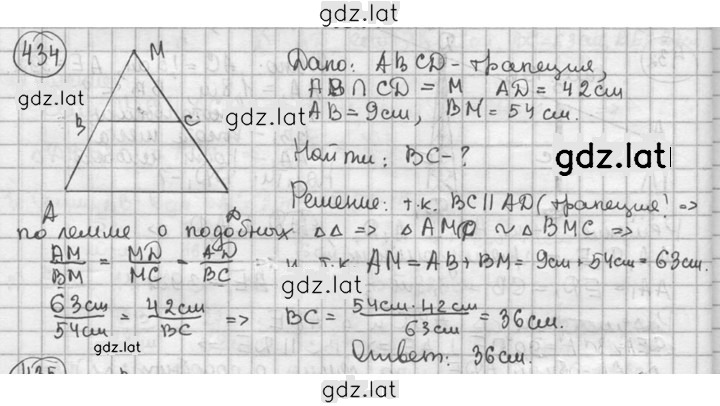 gdz.lat
434
M
Дано: ABCD - трапеция,
gdz.lat
AB ∩ CD = M AD = 42 см
B
C
gdz.lat
AB = 9 см, BM = 54 см.
Найти: BC - ?
gdz.lat
A
D
Решение: т.к. BC || AD (трапеция) =>
по лемме о подобных △△ => △ AMD ~ △ BMC =>
AM/BM = MD/MC = AD/BC и т.к AM = AB + BM = 9 см + 54 см = 63 см.
gdz.lat
63 см/54 см = 42 см/BC => BC = 54 см · 42 см/63 см = 36 см.
gdz.lat
Ответ: 36 см.
435
gdz.lat